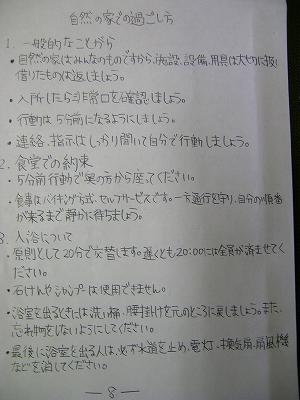 自然の家での過ごし方
1. 一般的なことがら
・自然の家はみんなのものですから、施設、設備、用具は大切に扱い
借りたものは返しましょう。
・入所したら非常口を確認しましょう。
・行動は5分前になるようにしましょう。
・連絡、指示はしっかり聞いて自分で行動しましょう。
2. 食堂での約束
・5分前行動で奥の方から座ってください。
・食事はバイキング方式、セルフサービスです。一方通行を守り、自分の順番
が来るまで静かに待ちましょう。
3. 入浴について
・原則として20分で交替します。遅くとも20:00には全員が済ませてく
ださい。
・石けんやシャンプーは使用できません。
・浴室を出るときには洗い桶、腰掛けを元のところに戻しましょう。また、
忘れ物をしないようにしてください。
・最後に浴室を出る人は、必ず水道を止め、電灯、換気扇、扇風機
などを消してください。
— 8 —